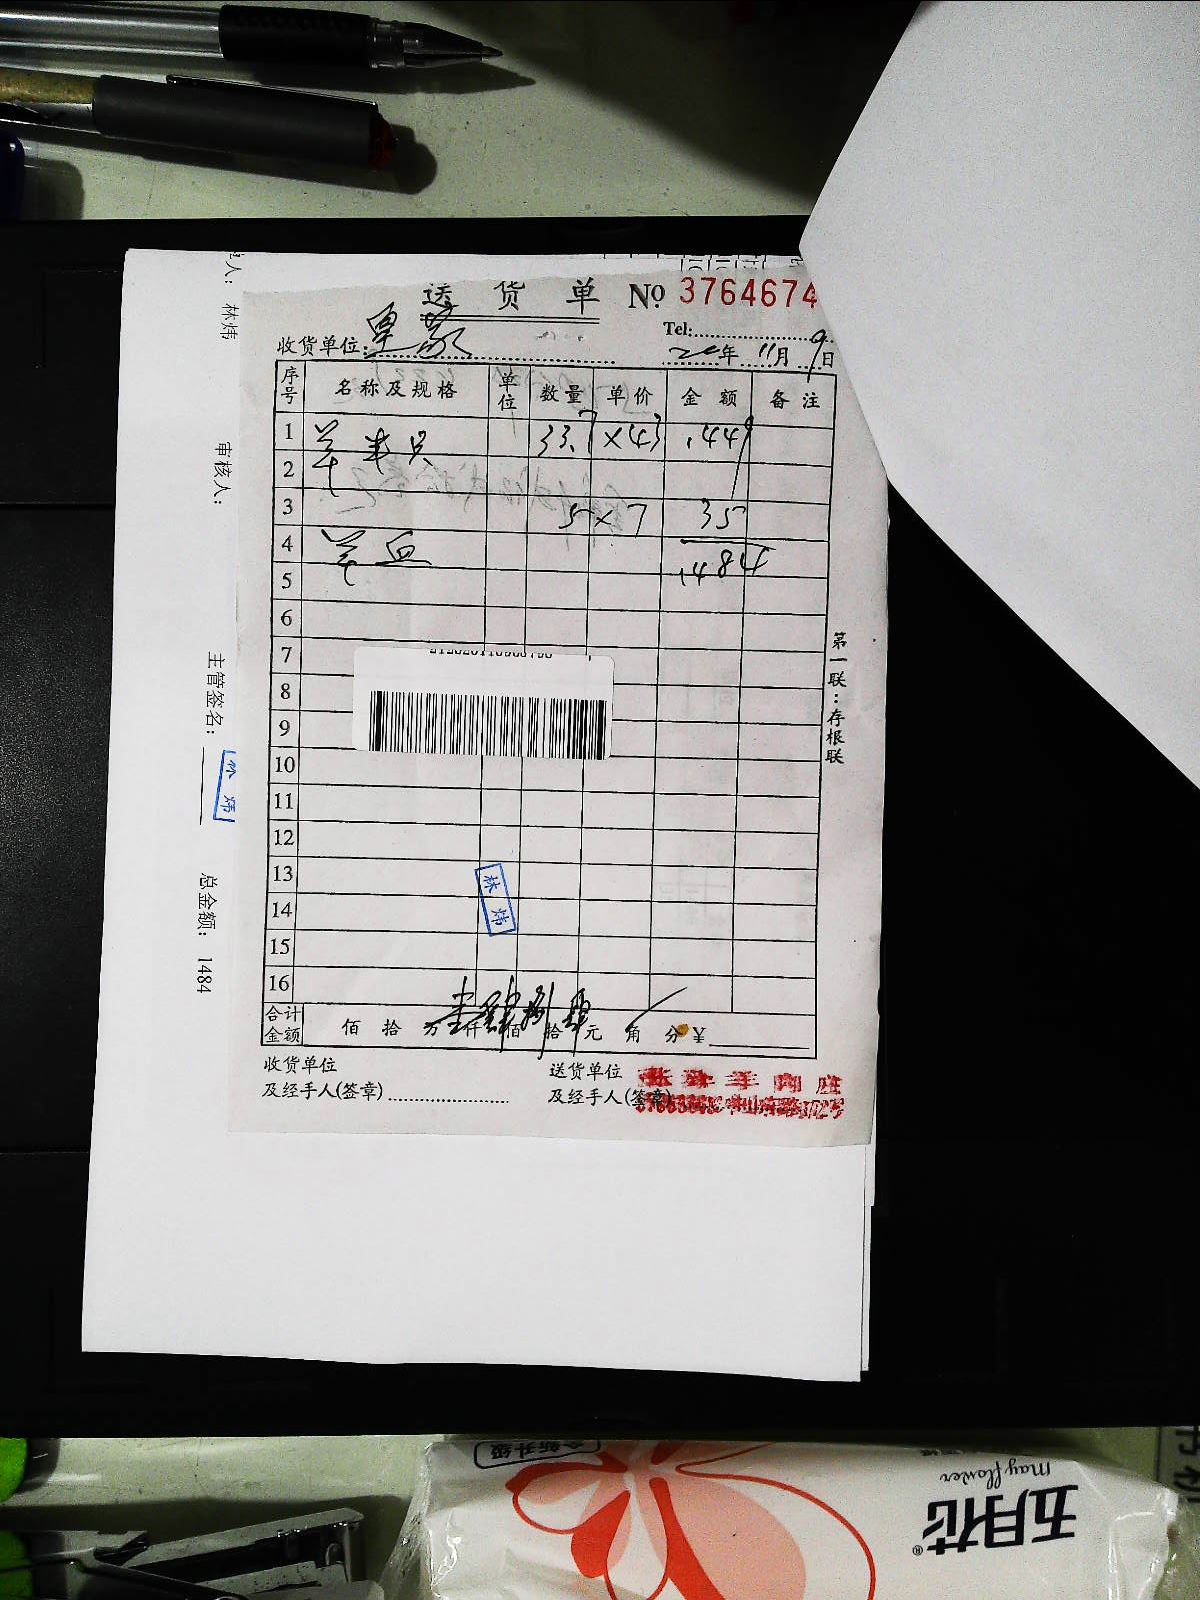 送货单 № 3764674
Tel:
收货单位: 皇家
20年 11月 9日
序号 名称及规格 单位 数量 单价 金额 备注
1 羊半只 33.7 × 43 1449
2
3 5 × 7 35
4 羊血 1484
5
6
7
8
9
10
11
12
13
14
15
16
林炜
合计金额 佰 拾 万壹仟肆佰捌拾肆元 角 分 ¥
收货单位 送货单位
及经手人(签章) 及经手人(签章)
羊肉店
第一联:存根联
人: 林炜
审核人:
主管签名: 林炜
总金额: 1484
全新升级
May flower
五月花®